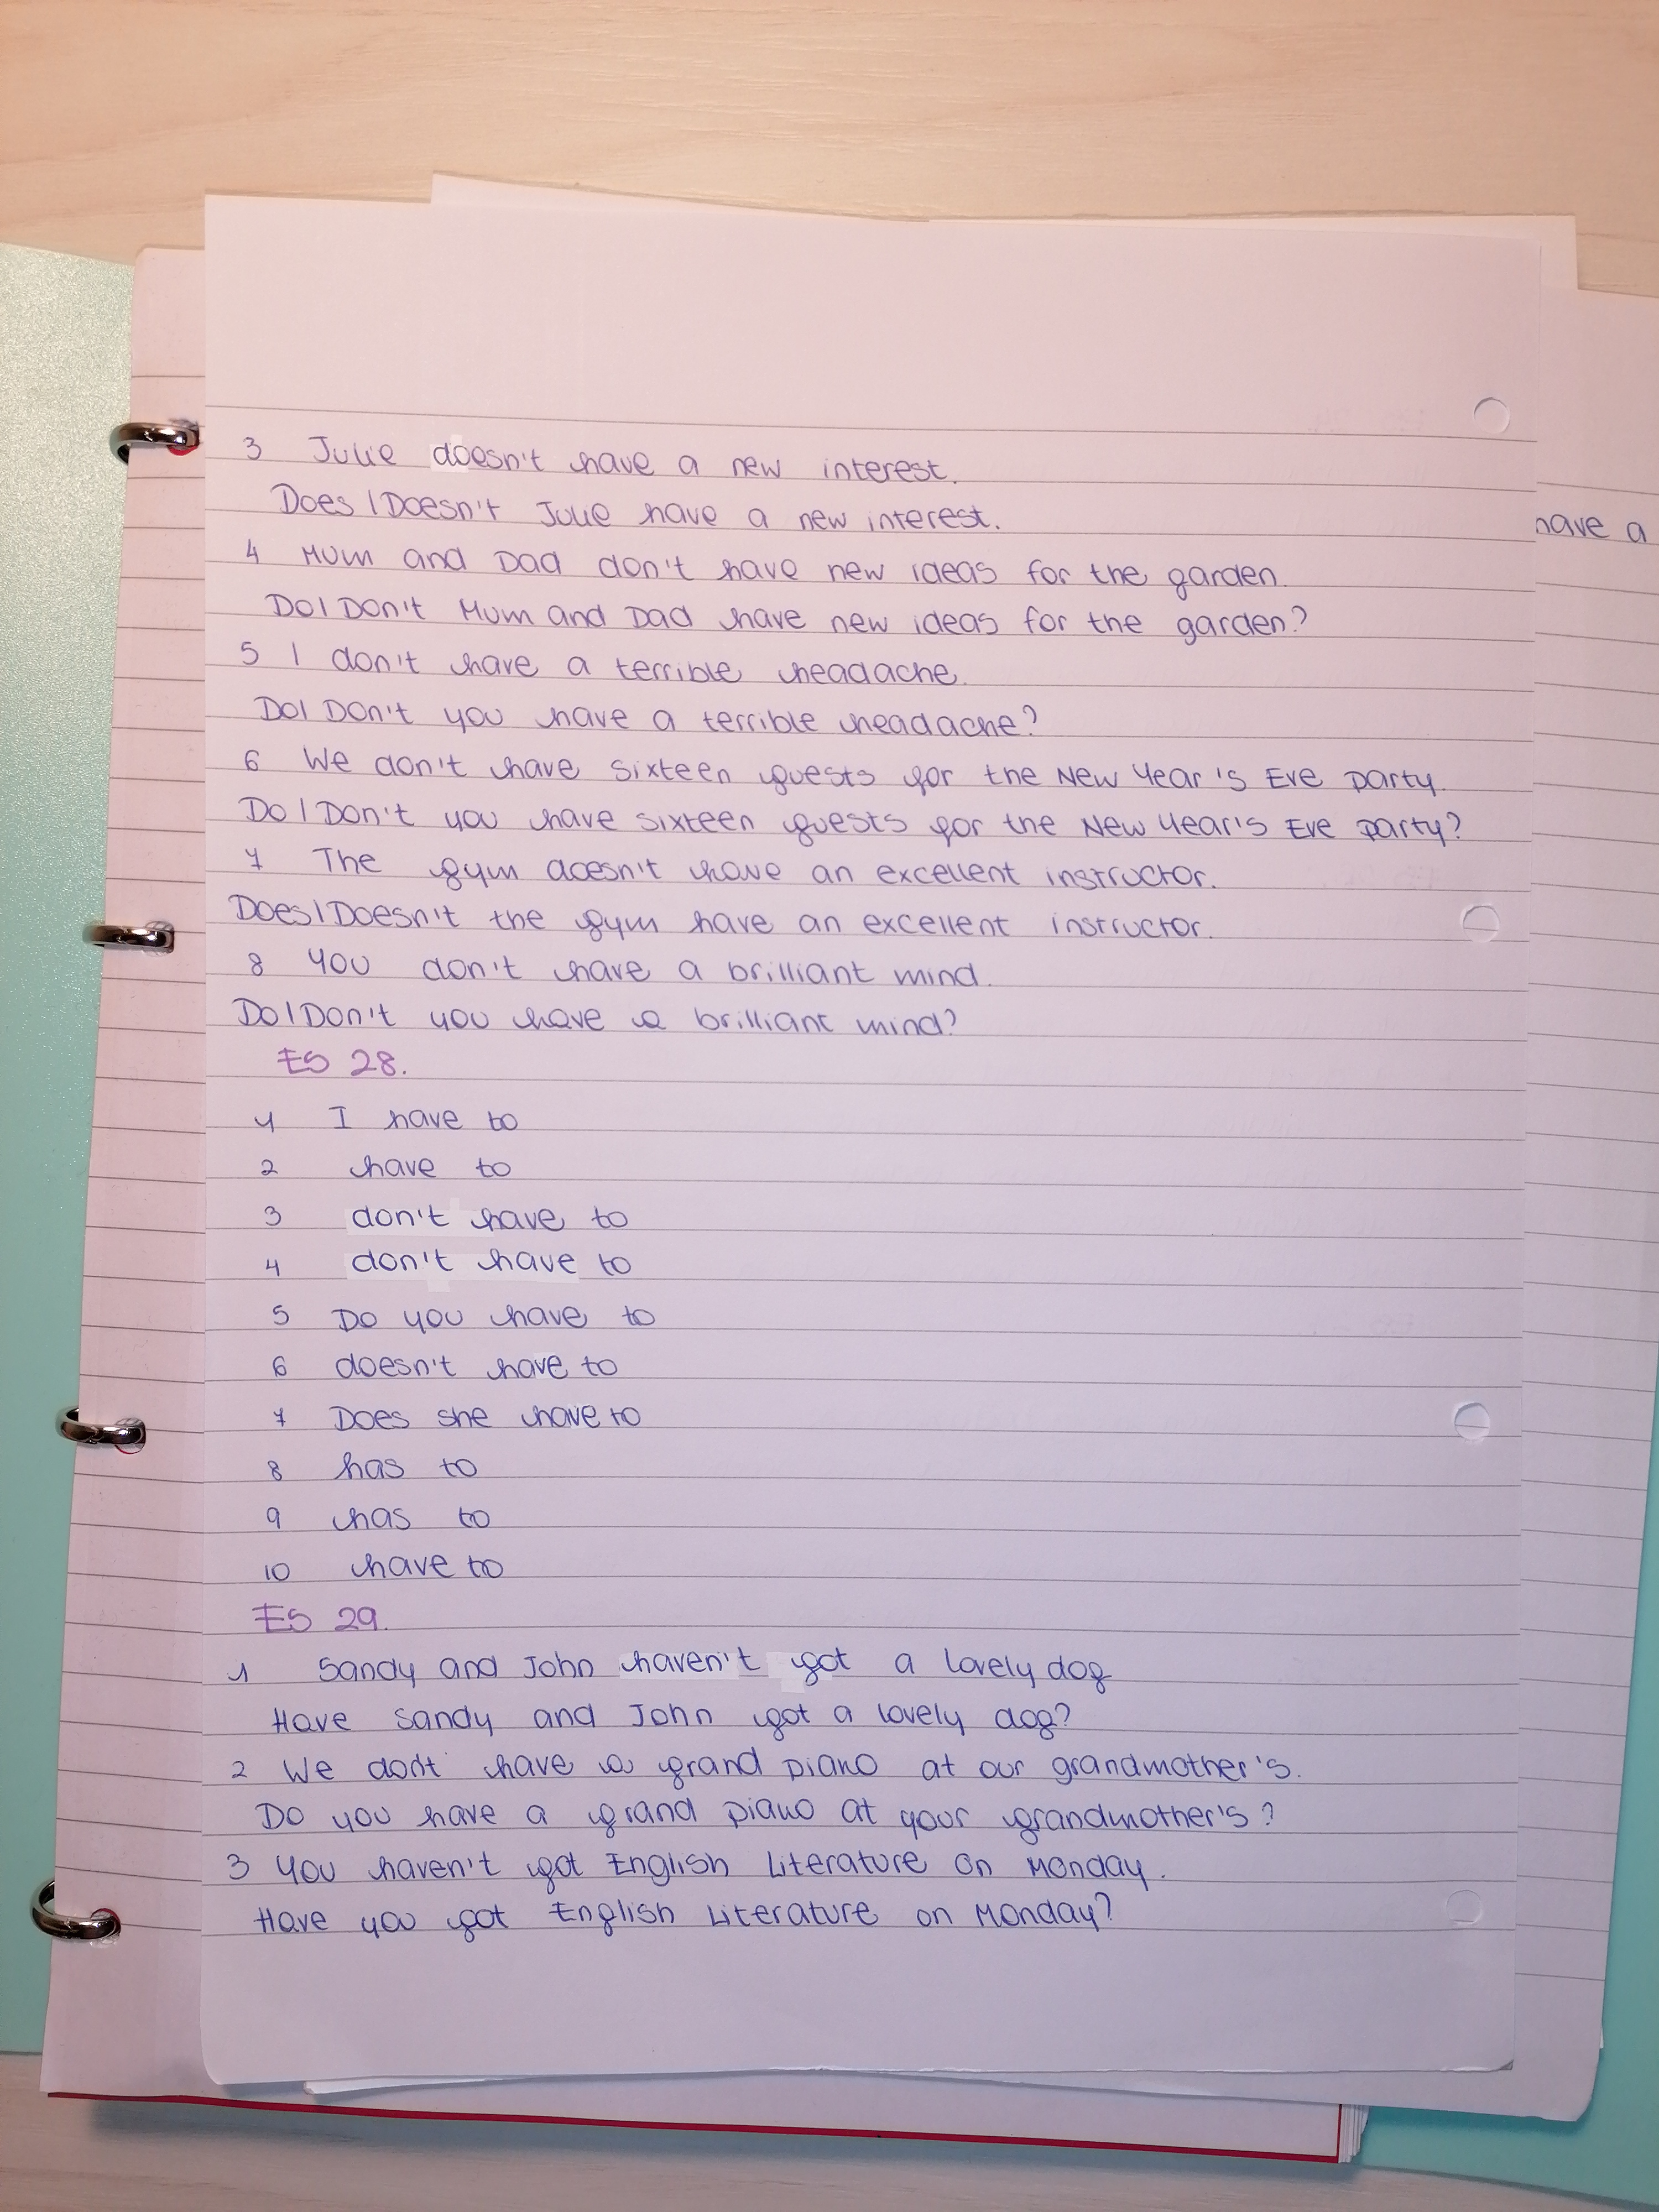 3 Julie doesn't have a new interest.
Does / Doesn't Julie have a new interest.
have a
4 Mum and Dad don't have new ideas for the garden.
Do/Don't Mum and Dad have new ideas for the garden?
5 I don't have a terrible headache.
Do/Don't you have a terrible headache?
6 We don't have sixteen guests for the New Year's Eve party.
Do/Don't you have sixteen guests for the New Year's Eve party?
7 The gym doesn't have an excellent instructor.
Does/Doesn't the gym have an excellent instructor.
8 You don't have a brilliant mind.
Do/Don't you have a brilliant mind?
ES 28.
1 I have to
2 have to
3 don't have to
4 don't have to
5 Do you have to
6 doesn't have to
7 Does she have to
8 has to
9 has to
10 have to
ES 29.
1 Sandy and John haven't got a lovely dog
Have Sandy and John got a lovely dog?
2 We don't have a grand piano at our grandmother's.
Do you have a grand piano at your grandmother's?
3 You haven't got English Literature on Monday.
Have you got English Literature on Monday?